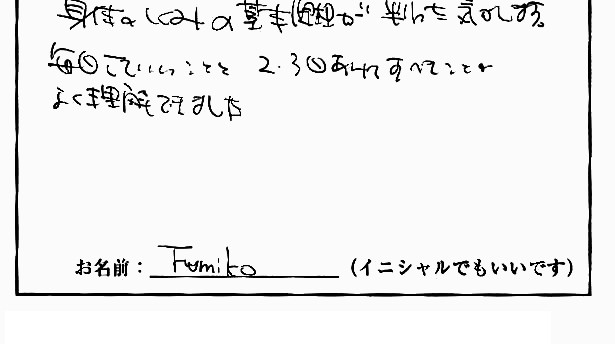 身体のしくみの基本原理が判った気がします。
毎日していいことと 2.3日あければすべてことが
よく理解できました
お名前： Fumiko （イニシャルでもいいです）